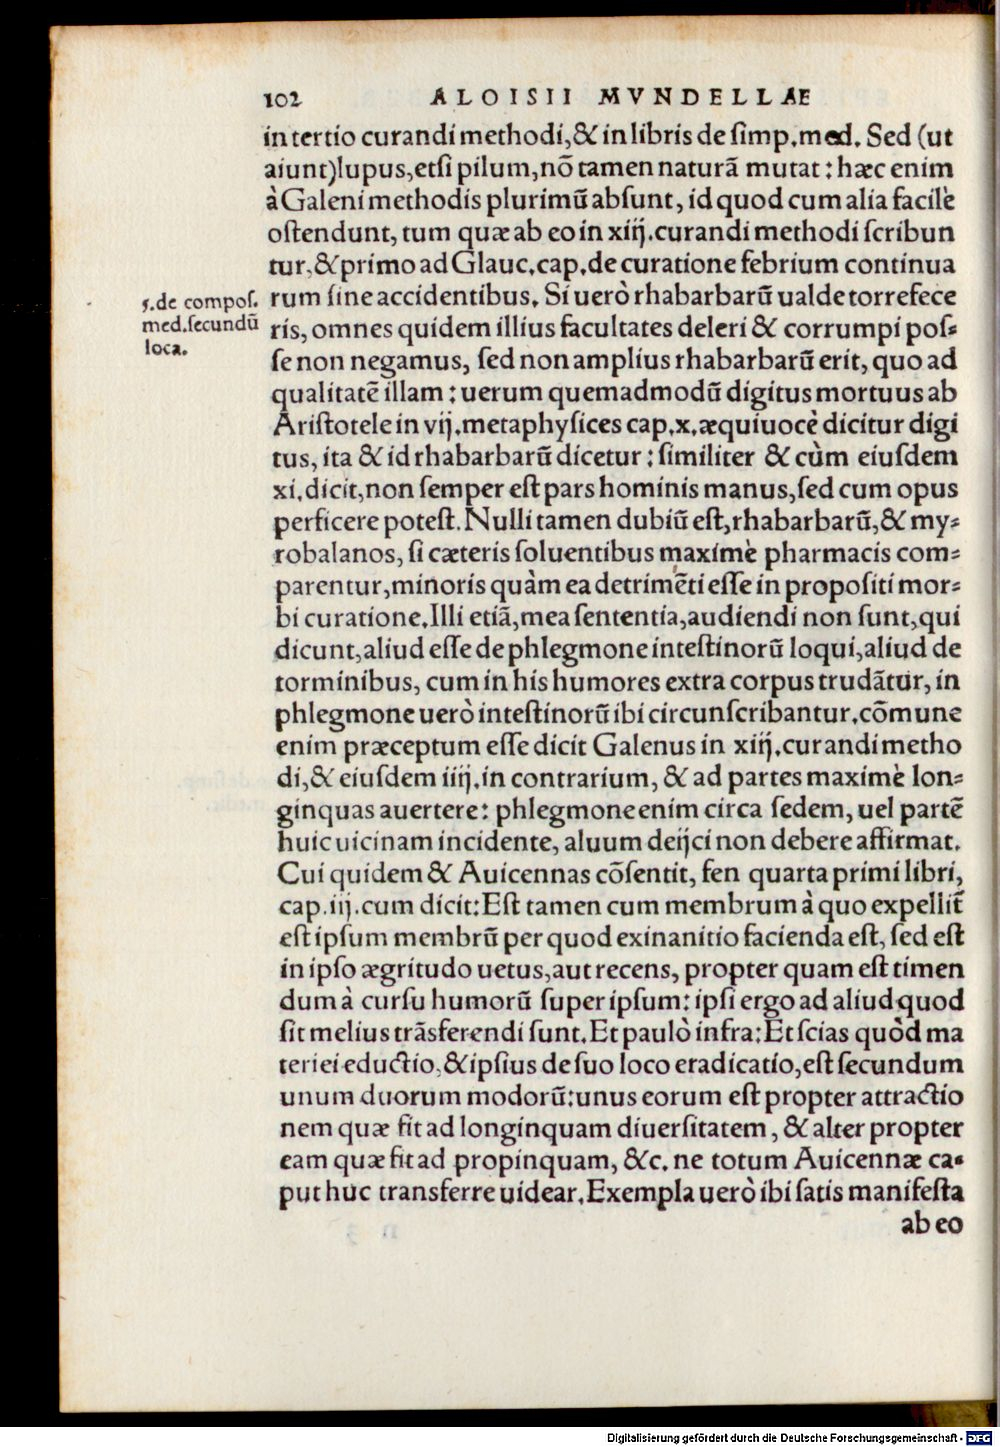 102 ALOISII MVNDELLAE
in tertio curandi methodi,& in libris de simp.med. Sed (ut
aiunt)lupus,etsi pilum,nõ tamen naturã mutat : hæc enim
à Galeni methodis plurimũ absunt, id quod cum alia facilè
ostendunt, tum quæ ab eo in xiij.curandi methodi scribun
tur,& primo ad Glauc.cap.de curatione febrium continua
rum sine accidentibus. Si uerò rhabarbarũ ualde torrefece
ris, omnes quidem illius facultates deleri & corrumpi pos-
se non negamus, sed non amplius rhabarbarũ erit, quo ad
qualitatẽ illam : uerum quemadmodũ digitus mortuus ab
Aristotele in vij.metaphysices cap.x.æquiuocè dicitur digi
tus, ita & id rhabarbarũ dicetur : similiter & cùm eiusdem
xi.dicit,non semper est pars hominis manus,sed cum opus
perficere potest. Nulli tamen dubiũ est,rhabarbarũ,& my-
robalanos, si cæteris soluentibus maximè pharmacis com-
parentur,minoris quàm ea detrimẽti esse in propositi mor-
bi curatione.Illi etiã,mea sententia,audiendi non sunt,qui
dicunt,aliud esse de phlegmone intestinorũ loqui,aliud de
torminibus, cum in his humores extra corpus trudãtur, in
phlegmone uerò intestinorũ ibi circunscribantur.cõmune
enim præceptum esse dicit Galenus in xiij.curandi metho
di,& eiusdem iiij.in contrarium, & ad partes maximè lon-
ginquas auertere: phlegmone enim circa sedem, uel partẽ
huic uicinam incidente, aluum deijci non debere affirmat.
Cui quidem & Auicennas cõsentit, fen quarta primi libri,
cap.iij.cum dicit:Est tamen cum membrum à quo expellit̃
est ipsum membrũ per quod exinanitio facienda est, sed est
in ipso ægritudo uetus,aut recens, propter quam est timen
dum à cursu humorũ super ipsum: ipsi ergo ad aliud quod
sit melius trãsferendi sunt. Et paulò infra: Et scias quòd ma
teriei eductio,& ipsius de suo loco eradicatio,est secundum
unum duorum modorũ:unus eorum est propter attractio
nem quæ fit ad longinquam diuersitatem, & alter propter
eam quæ fit ad propinquam, &c. ne totum Auicennæ ca-
put huc transferre uidear. Exempla uerò ibi satis manifesta
ab eo
5.de compos.
med.secundũ
loca.
Digitalisierung gefördert durch die Deutsche Forschungsgemeinschaft - DFG